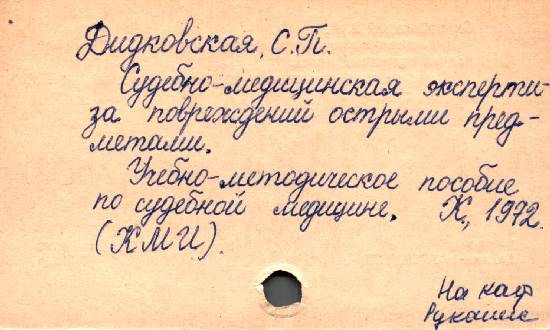 Дидковская, С.П.
Судебно-медицинская эксперти-
за повреждений острыми пред-
метами.
Учебно-методическое пособие
по судебной медицине. Х., 1972.
(КМИ).
На каф